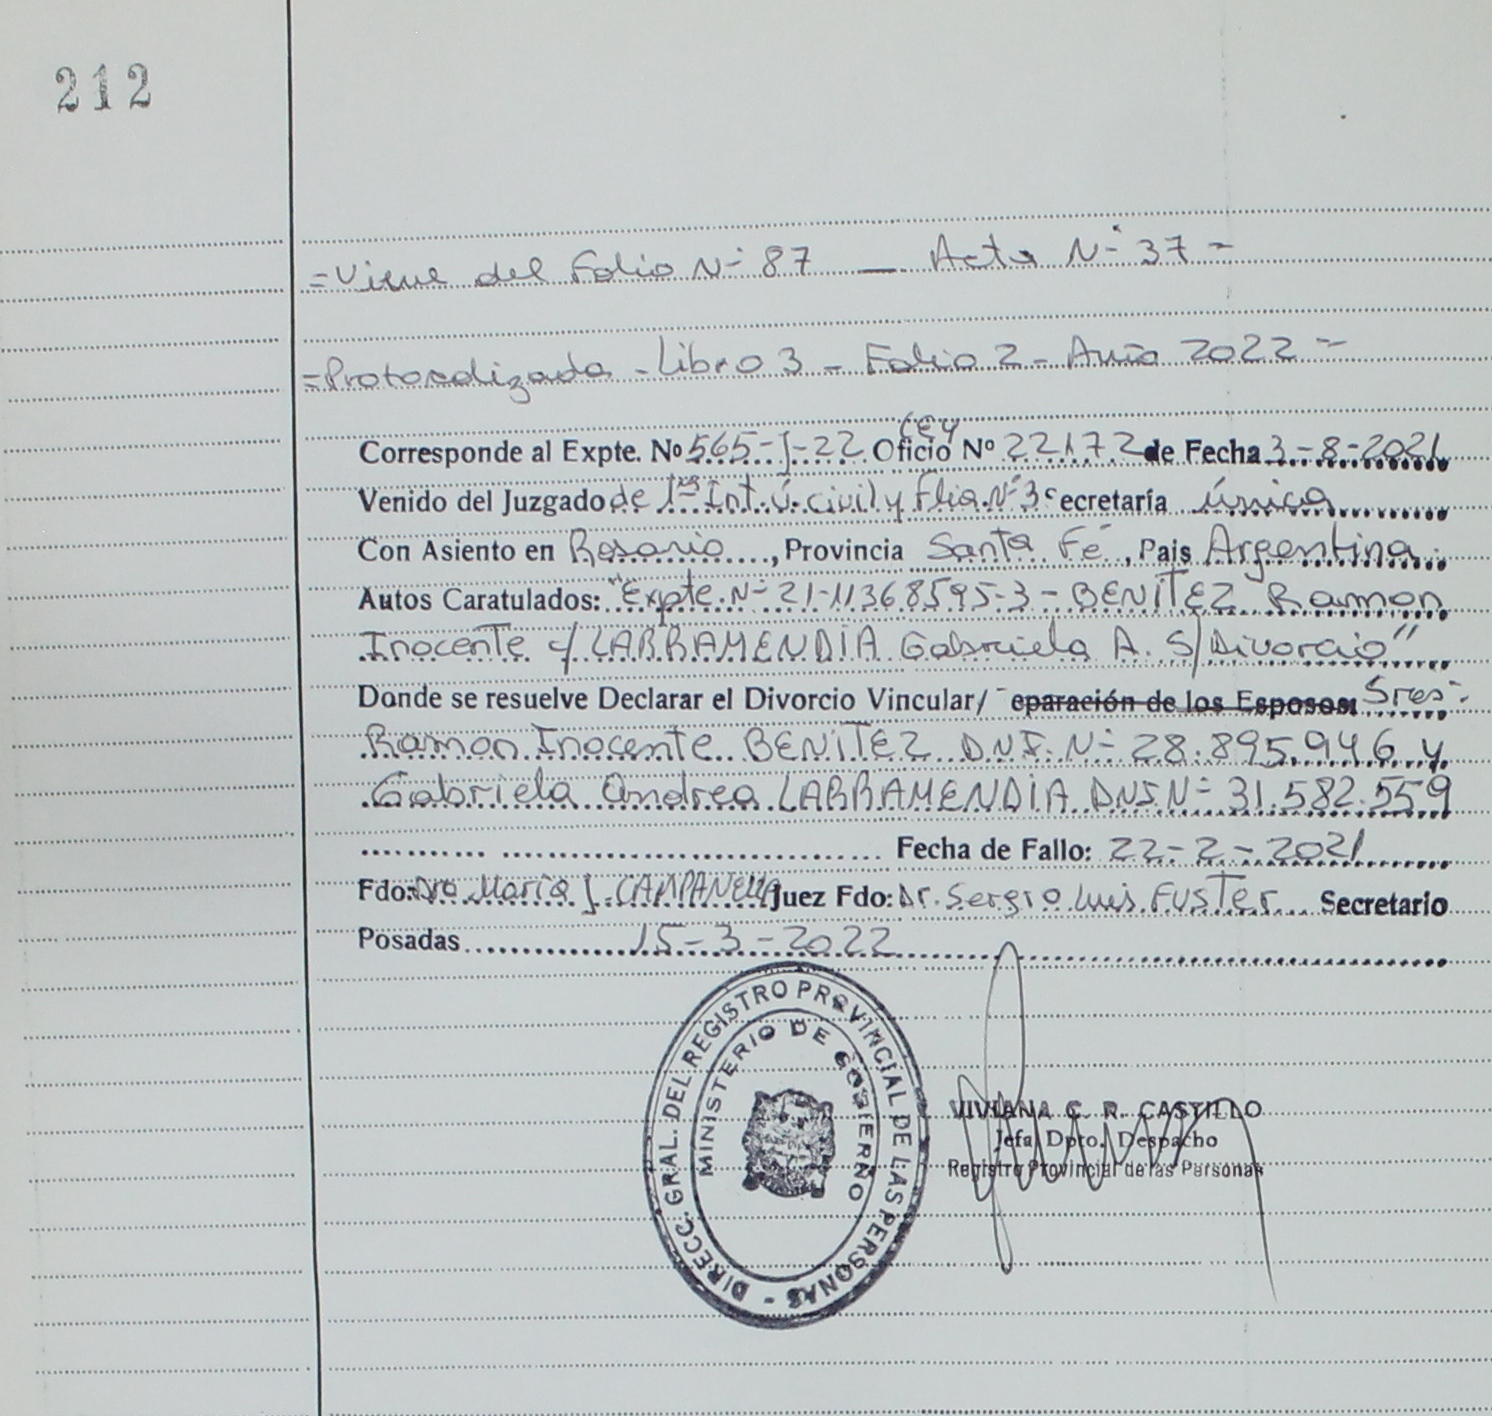 212
=Viene del Folio N- 87 — Acta N- 37 -
=Protocolizado - Libro 3 - Folio 2 - Año 2022 -
Corresponde al Expte. Nº 565-J-22 Oficio (LEY Nº 22172 de Fecha 3-8-2021
Venido del Juzgado de 1ra Int. U. civil y Flia. Nº 3 ecretaría única
Con Asiento en Rosario, Provincia Santa Fé, Pais Argentina
Autos Caratulados: "Expte. N- 21-11368595-3 - BENÍTEZ Ramon
Inocente c/ LARRAMENDIA Gabriela A. S/Divorcio"
Donde se resuelve Declarar el Divorcio Vincular/ eparación de los Esposos: Sres-
Ramon Inocente BENÍTEZ D.N.I. N- 28.895.946 y
Gabriela Andrea LARRAMENDIA DNI N- 31.582.559
Fecha de Fallo: 22-2-2021
Fdo: Dra María J. CAMPANELLA Juez Fdo: Dr. Sergio Luis FUSTER Secretario
Posadas 15-3-2022
DIRECC. GRAL. DEL REGISTRO PROVINCIAL DE LAS PERSONAS -
MINISTERIO DE GOBIERNO
VIVIANA C. R. CASTILLO
Jefa Dpto. Despacho
Registro Provincial de las Personas